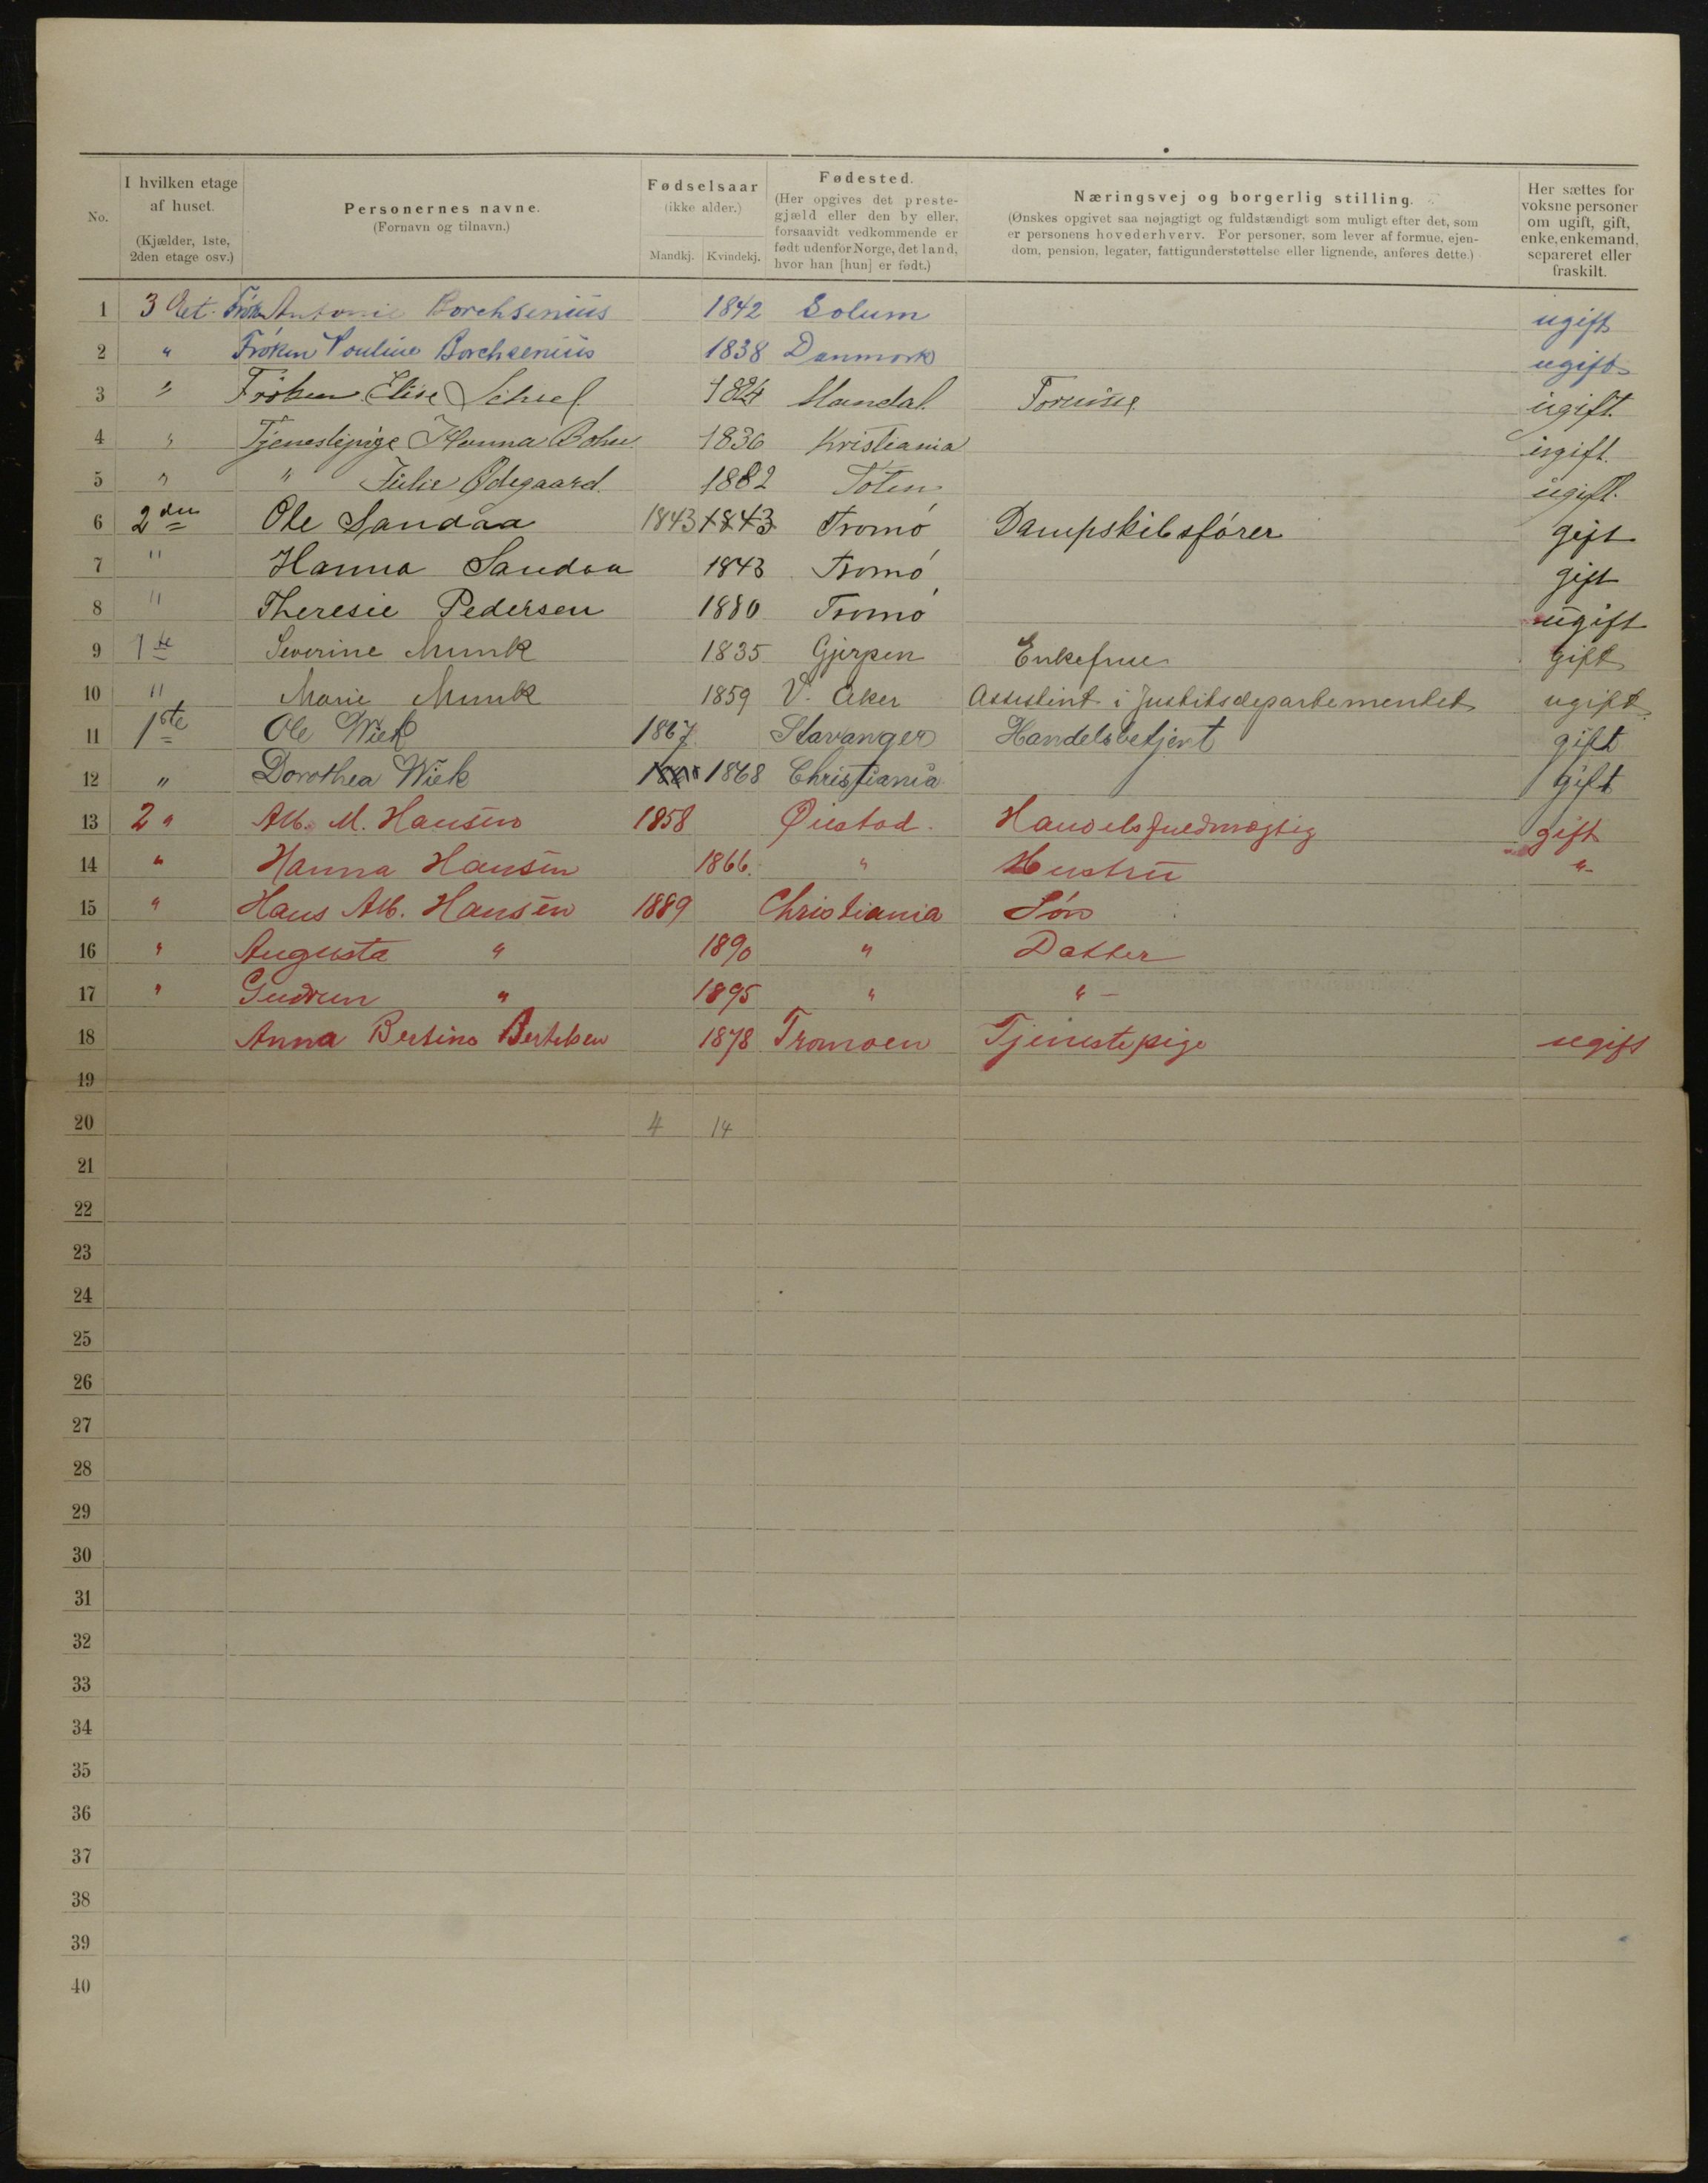 No. | I hvilken etage af huset. (Kjælder, 1ste, 2den etage osv.) | Personernes navne. (Fornavn og tilnavn.) | Fødselsaar (ikke alder.) Mandkj. Kvindekj. | Fødested. (Her opgives det prestegjæld eller den by eller, forsaavidt vedkommende er født udenfor Norge, det land, hvor han [hun] er født.) | Næringsvej og borgerlig stilling. (Ønskes opgivet saa nøjagtigt og fuldstændigt som muligt efter det, som er personens hovederhverv. For personer, som lever af formue, ejendom, pension, legater, fattigunderstøttelse eller lignende, anføres dette.) | Her sættes for voksne personer om ugift, gift, enke, enkemand, separeret eller fraskilt.
1 3 Et. Frøk Antonie Borchsenius 1842 Solum ugift
2 " Frøken Pouline Borchsenius 1838 Danmark ugift
3 " Frøken Elise 1824 Mandal. ugift.
4 " Tjenestepige Hanna 1836 Kristiania ugift.
5 " " Julie Ødegaard. 1882 Toten ugift.
6 2den Ole Sandaa 1843 1843 Tromø Dampskibsfører gift
7 " Hanna Sandaa 1843 Tromø gift
8 " Theresie Pedersen 1880 Tromø ugift
9 1ste Severine Munk 1835 Gjerpen Enkefrue gift
10 " Marie Munk 1859 V. Aker Assistent i Justitsdepartementet ugift.
11 1ste Ole Wiek 1867 Stavanger Handelsbetjent gift
12 " Dorothea Wiek 1868 Christiania gift
13 2 " Alb. M. Hansen 1858 Øiestad. Handelsfuldmægtig gift
14 " Hanna Hansen 1866. " Hustru "
15 " Hans Alb. Hansen 1889 Christiania Søn
16 " Augusta " 1890 " Datter
17 " Gudrun " 1895 " " -
18 Anna Bertine Bertelsen 1878 Tromoen Tjenestepige ugift
19
20 4 14
21
22
23
24
25
26
27
28
29
30
31
32
33
34
35
36
37
38
39
40